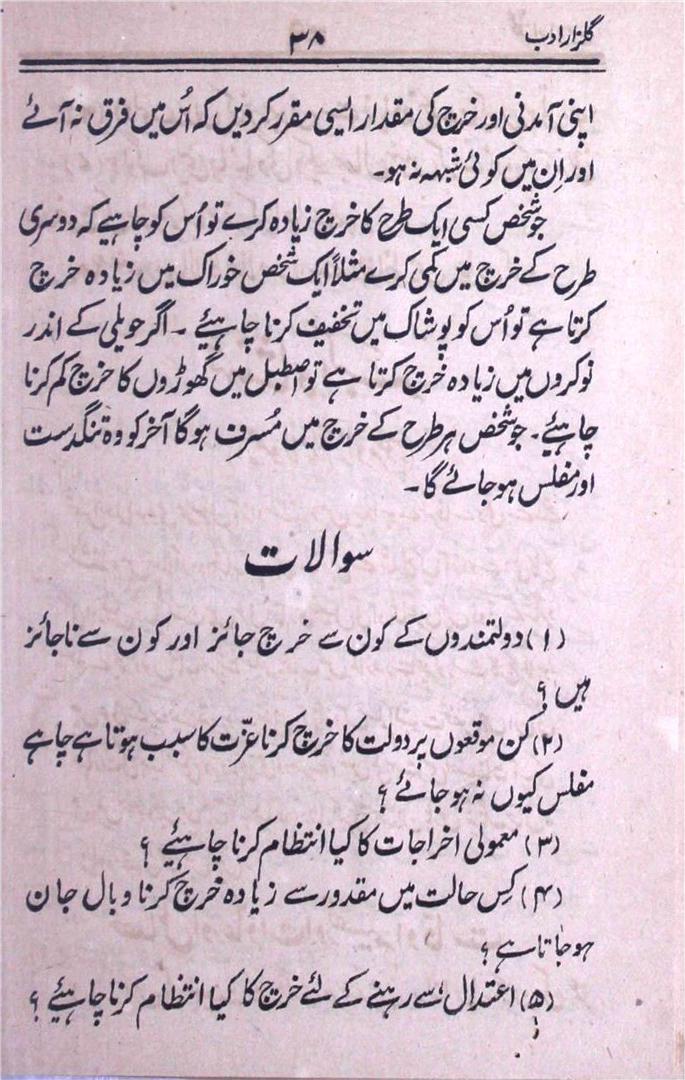 گلزار ادب
۳۸
اپنی آمدنی اور خرچ کی مقدار ایسی مقرر کر دیں کہ اُس میں فرق نہ آئے
اور اِن میں کوئی شبہہ نہ ہو۔
جو شخص کسی ایک طرح کا خرچ زیادہ کرے تو اُس کو چاہیے کہ دوسری
طرح کے خرچ میں کمی کرے مثلاً ایک شخص خوراک میں زیادہ خرچ
کرتا ہے تو اُس کو پوشاک میں تخفیف کرنا چاہئیے ۔ اگر حویلی کے اندر
نوکروں میں زیادہ خرچ کرتا ہے تو اصطبل میں گھوڑوں کا خرچ کم کرنا
چاہئیے۔ جو شخص ہر طرح کے خرچ میں مُسرف ہوگا آخر کو وہ تنگدست
اور مفلس ہو جائے گا۔
سوالات
(۱) دولتمندوں کے کون سے خرچ جائز اور کون سے ناجائز
ہیں ؟
(۲) کن موقعوں پر دولت کا خرچ کرنا عزّت کا سبب ہوتا ہے چاہے
مفلس کیوں نہ ہو جائے ؟
(۳) معمولی اخراجات کا کیا انتظام کرنا چاہئیے ؟
(۴) کِس حالت میں مقدور سے زیادہ خرچ کرنا وبال جان
ہو جاتا ہے ؟
(۵) اعتدال سے رہنے کے لئے خرچ کا کیا انتظام کرنا چاہئیے ؟